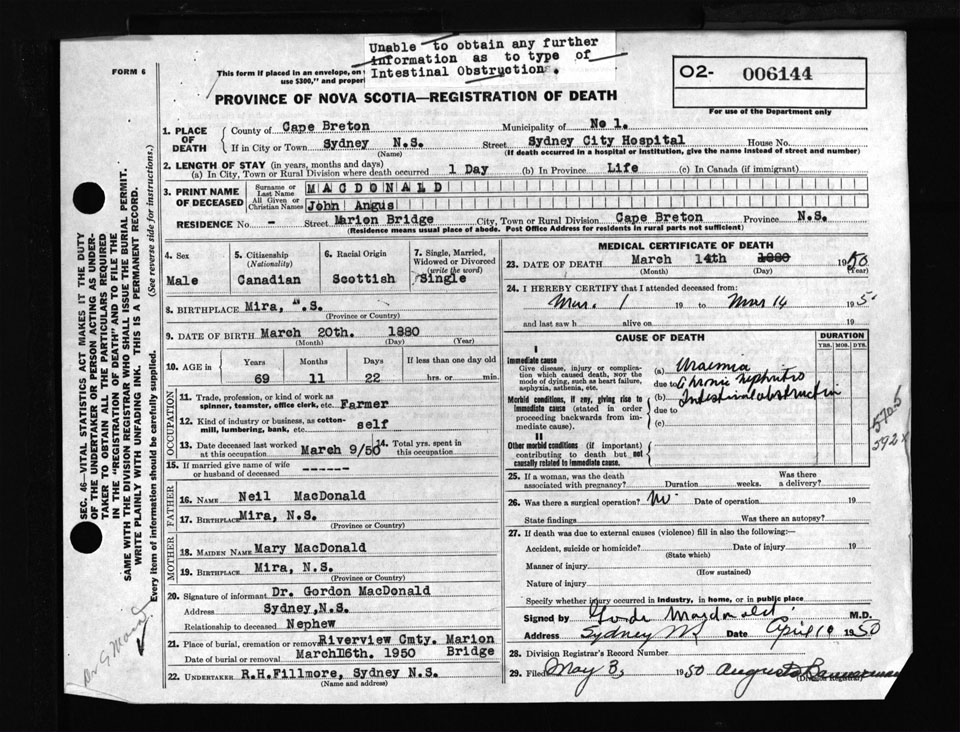 Unable to obtain any further
information as to type of
Intestinal Obstruction.
FORM 6
This form if placed in an envelope, on
use $300," and proper
O2- 006144
For use of the Department only
PROVINCE OF NOVA SCOTIA—REGISTRATION OF DEATH
1. PLACE OF DEATH
County of Cape Breton Municipality of No 1.
If in City or Town Sydney N.S. Street Sydney City Hospital House No.
(Name) (If death occurred in a hospital or institution, give the name instead of street and number)
2. LENGTH OF STAY (in years, months and days)
(a) In City, Town or Rural Division where death occurred 1 Day (b) In Province Life (c) In Canada (if immigrant)
3. PRINT NAME OF DECEASED
Surname or Last Name MACDONALD
All Given or Christian Names John Angus
RESIDENCE No. - Street Marion Bridge City, Town or Rural Division Cape Breton Province N.S.
(Residence means usual place of abode. Post Office Address for residents in rural parts not sufficient)
4. Sex Male
5. Citizenship (Nationality) Canadian
6. Racial Origin Scottish
7. Single, Married, Widowed or Divorced (write the word) Single
8. BIRTHPLACE Mira, N.S.
(Province or Country)
9. DATE OF BIRTH March 20th. 1880
(Month) (Day) (Year)
10. AGE in Years Months Days If less than one day old
69 11 22 hrs. or min.
OCCUPATION
11. Trade, profession, or kind of work as
spinner, teamster, office clerk, etc. Farmer
12. Kind of industry or business, as cotton-
mill, lumbering, bank, etc. self
13. Date deceased last worked
at this occupation March 9/50
14. Total yrs. spent in
this occupation
15. If married give name of wife
or husband of deceased ------
FATHER
16. NAME Neil MacDonald
17. BIRTHPLACE Mira, N.S.
(Province or Country)
MOTHER
18. MAIDEN NAME Mary MacDonald
19. BIRTHPLACE Mira, N.S.
(Province or Country)
20. Signature of informant Dr. Gordon MacDonald
Address Sydney, N.S.
Relationship to deceased Nephew
21. Place of burial, cremation or removal Riverview Cmty. Marion
Bridge
Date of burial or removal March 16th. 1950
22. UNDERTAKER R.H.Fillmore, Sydney N.S.
(Name and address)
MEDICAL CERTIFICATE OF DEATH
23. DATE OF DEATH March 14th 1880 1950
(Month) (Day) (Year)
24. I HEREBY CERTIFY that I attended deceased from:
Mar. 1 19 to Mar 14 195
and last saw h alive on 19
CAUSE OF DEATH
DURATION
YRS. MOS. DYS.
I
Immediate cause
Give disease, injury or complica-
tion which caused death, NOT the
mode of dying, such as heart failure,
asphyxia, asthenia, etc.
(a) Uraemia
due to Chronic nephritis
Morbid conditions, if any, giving rise to
immediate cause (stated in order
proceeding backwards from im-
mediate cause).
(b) Intestinal obstruction
due to
(c)
II
Other morbid conditions (if important)
contributing to death but not
causally related to immediate cause.
5705
592x
25. If a woman, was the death
associated with pregnancy? Duration weeks. Was there
a delivery?
26. Was there a surgical operation? No Date of operation 19
State findings Was there an autopsy?
27. If death was due to external causes (violence) fill in also the following:—
Accident, suicide or homicide? Date of injury 19
(State which)
Manner of injury
(How sustained)
Nature of injury
Specify whether injury occurred in industry, in home, or in public place
Signed by Gordon Macdonald M.D.
Address Sydney NS Date April 10 1950
28. Division Registrar's Record Number
29. Filed May 3 1950
(Division Registrar)
SEC. 46—VITAL STATISTICS ACT MAKES IT THE DUTY
OF THE UNDERTAKER OR PERSON ACTING AS UNDER-
TAKER TO OBTAIN ALL THE PARTICULARS REQUIRED
IN THE "REGISTRATION OF DEATH" AND TO FILE THE
SAME WITH THE DIVISION REGISTRAR WHO SHALL ISSUE THE BURIAL PERMIT.
WRITE PLAINLY WITH UNFADING INK. THIS IS A PERMANENT RECORD.
Every item of information should be carefully supplied. (See reverse side for instructions.)